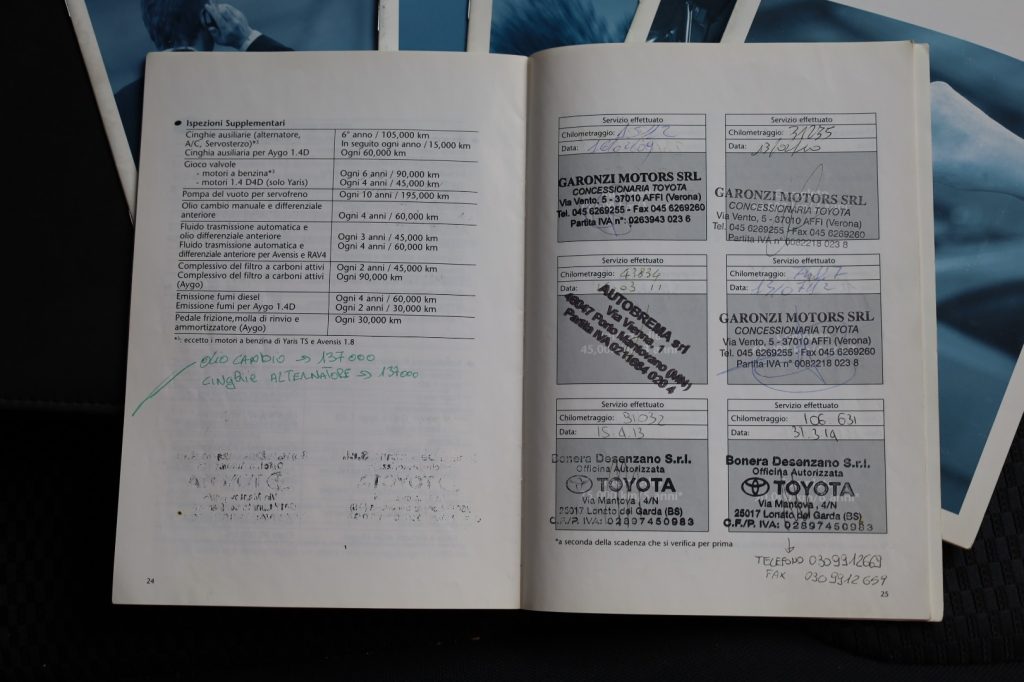 ● Ispezioni Supplementari
Cinghie ausiliarie (alternatore, A/C, Servosterzo)*¹ 6° anno / 105,000 km
In seguito ogni anno / 15,000 km
Cinghia ausiliaria per Aygo 1.4D Ogni 60,000 km
Gioco valvole
- motori a benzina*² Ogni 6 anni / 90,000 km
- motori 1.4 D4D (solo Yaris) Ogni 4 anni / 45,000 km
Pompa del vuoto per servofreno Ogni 10 anni / 195,000 km
Olio cambio manuale e differenziale
anteriore Ogni 4 anni / 60,000 km
Fluido trasmissione automatica e
olio differenziale anteriore Ogni 3 anni / 45,000 km
Fluido trasmissione automatica e Ogni 4 anni / 60,000 km
differenziale anteriore per Avensis e RAV4
Complessivo del filtro a carboni attivi Ogni 2 anni / 45,000 km
Complessivo del filtro a carboni attivi Ogni 90,000 km
(Aygo)
Emissione fumi diesel Ogni 4 anni / 60,000 km
Emissione fumi per Aygo 1.4D Ogni 2 anni / 30,000 km
Pedale frizione,molla di rinvio e Ogni 30,000 km
ammortizzatore (Aygo)
*¹: eccetto i motori a benzina di Yaris TS e Avensis 1.8
OLIO CAMBIO → 137000
CINGHIE ALTERNATORE → 137000
1
24
Servizio effettuato
Chilometraggio: 1512
Data:
GARONZI MOTORS SRL
CONCESSIONARIA TOYOTA
Via Vento, 5 - 37010 AFFI (Verona)
Tel. 045 6269255 - Fax 045 6269260
Partita IVA n°: 0263943 023 6
Servizio effettuato
Chilometraggio: 31235
Data:
GARONZI MOTORS SRL
CONCESSIONARIA TOYOTA
Via Vento, 5 - 37010 AFFI (Verona)
Tel. 045 6269255 - Fax 045 6269260
Partita IVA n° 0082218 023 8
Servizio effettuato
Chilometraggio: 43834
Data: 03 11
AUTOBREMA srl
46047 Porto Mantovano (MN)
Servizio effettuato
Chilometraggio:
Data:
GARONZI MOTORS SRL
CONCESSIONARIA TOYOTA
Via Vento, 5 - 37010 AFFI (Verona)
Tel. 045 6269255 - Fax 045 6269260
Partita IVA n° 0082218 023 8
Servizio effettuato
Chilometraggio: 91032
Data: 15.4.13
Bonera Desenzano S.r.l.
Officina Autorizzata
TOYOTA
Via Mantova , 4/N
25017 Lonato del Garda (BS)
C.F./P. IVA: 02897450983
Servizio effettuato
Chilometraggio: 106 631
Data: 31.3.14
Bonera Desenzano S.r.l.
Officina Autorizzata
TOYOTA
Via Mantova , 4/N
25017 Lonato del Garda (BS)
C.F./P. IVA: 02897450983
*a seconda della scadenza che si verifica per prima
TELEFONO 0309912669
FAX 0309912659
25